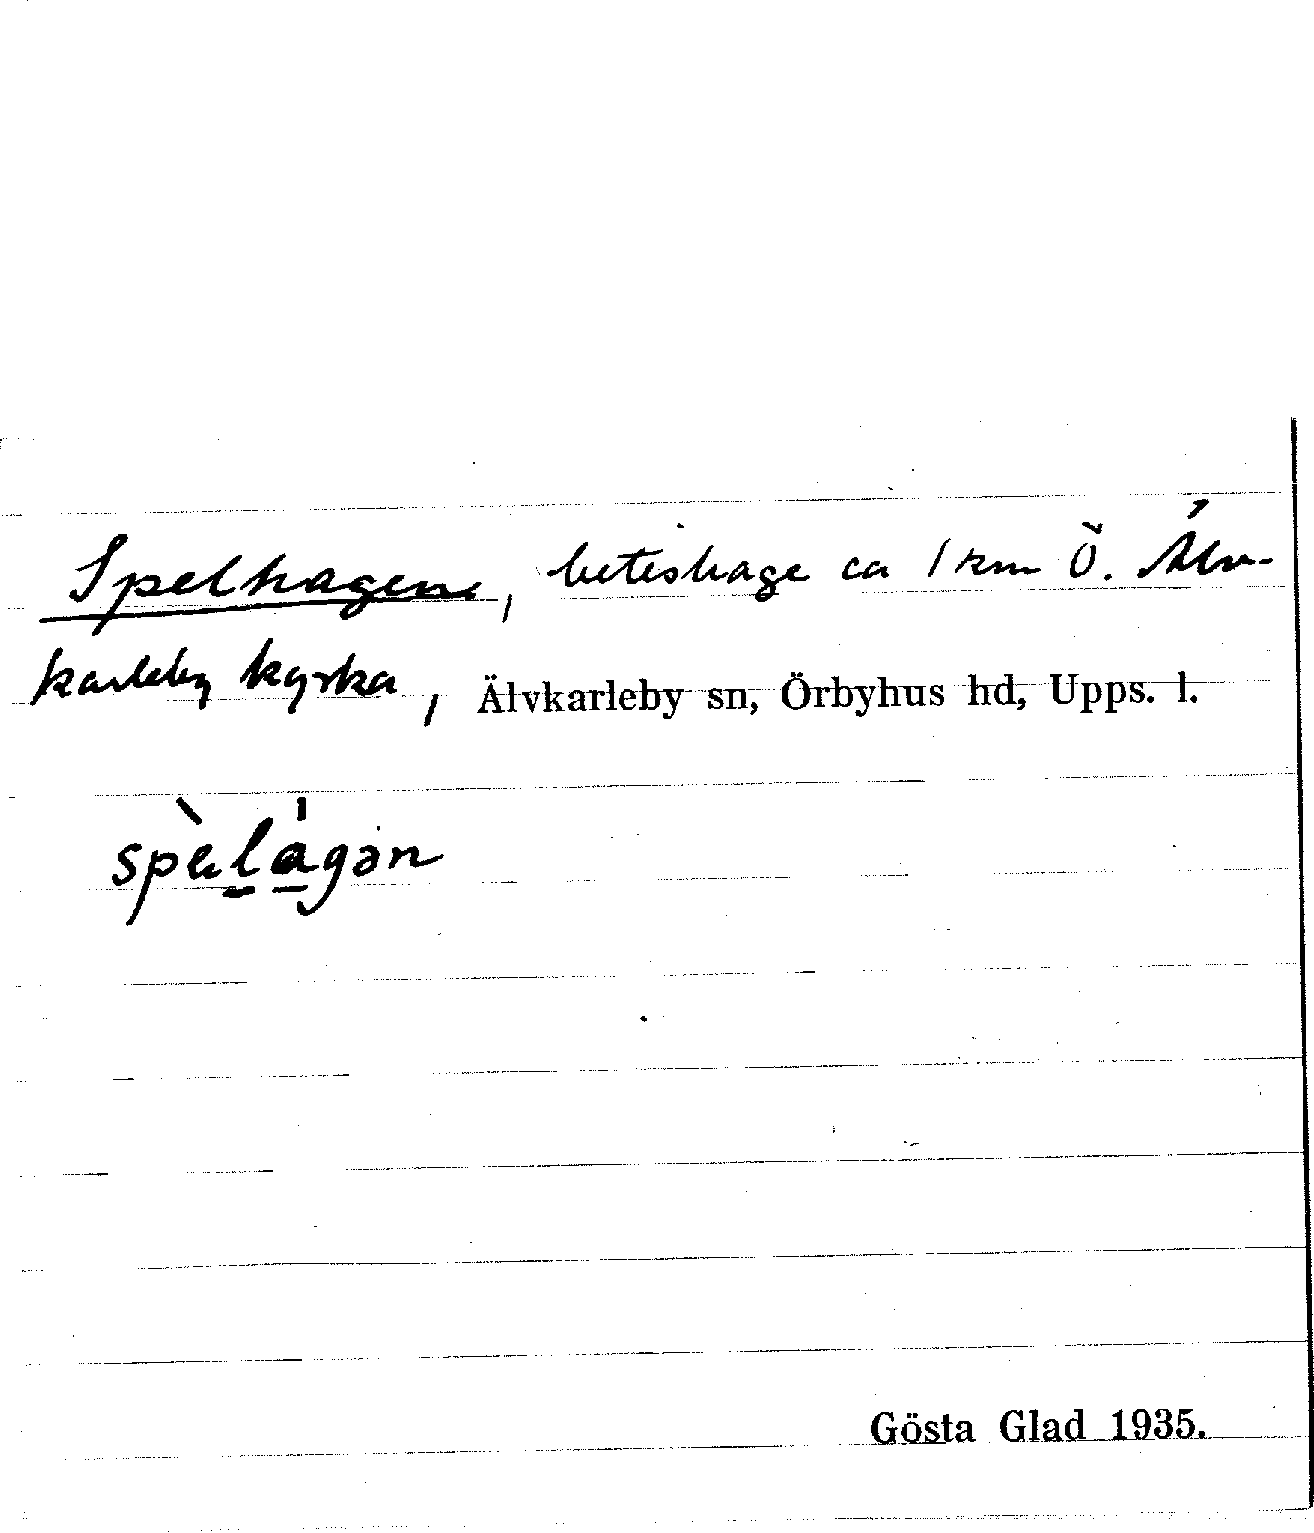 Spelhagen, beteshage ca 1 km Ö. Älv-
karleby kyrka, Älvkarleby sn, Örbyhus hd, Upps. l.
Gösta Glad 1935.